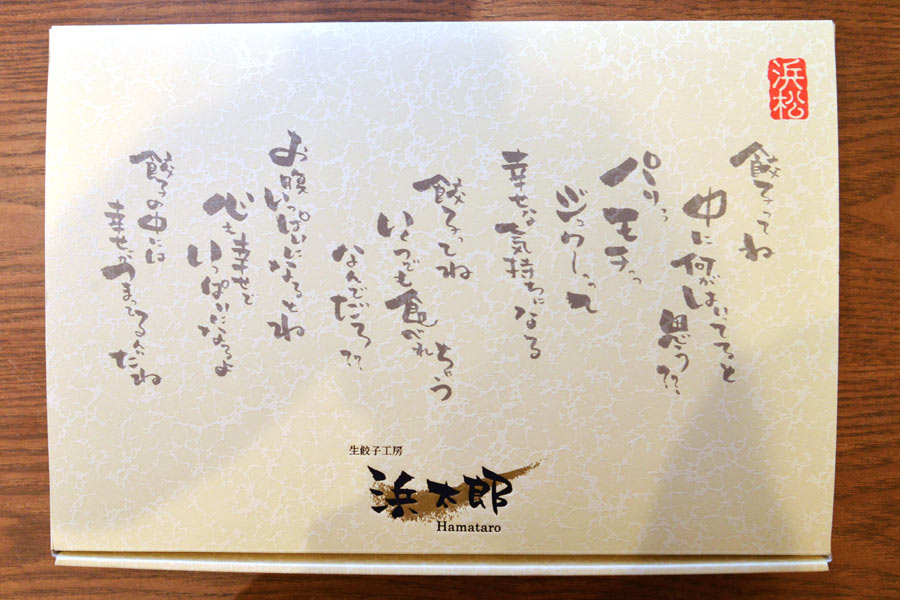 浜松
餃子ってね
中に何がはいってると
思う??
パリっ
モチっ
ジュワーって
幸せな気持ちになる
餃子ってね
いくつでも食べれちゃう
なんでだろ??
お腹いっぱいになるとね
心も幸せで
いっぱいになるよ
餃子の中には
幸せがつまってるんだね
生餃子工房
浜太郎
Hamataro